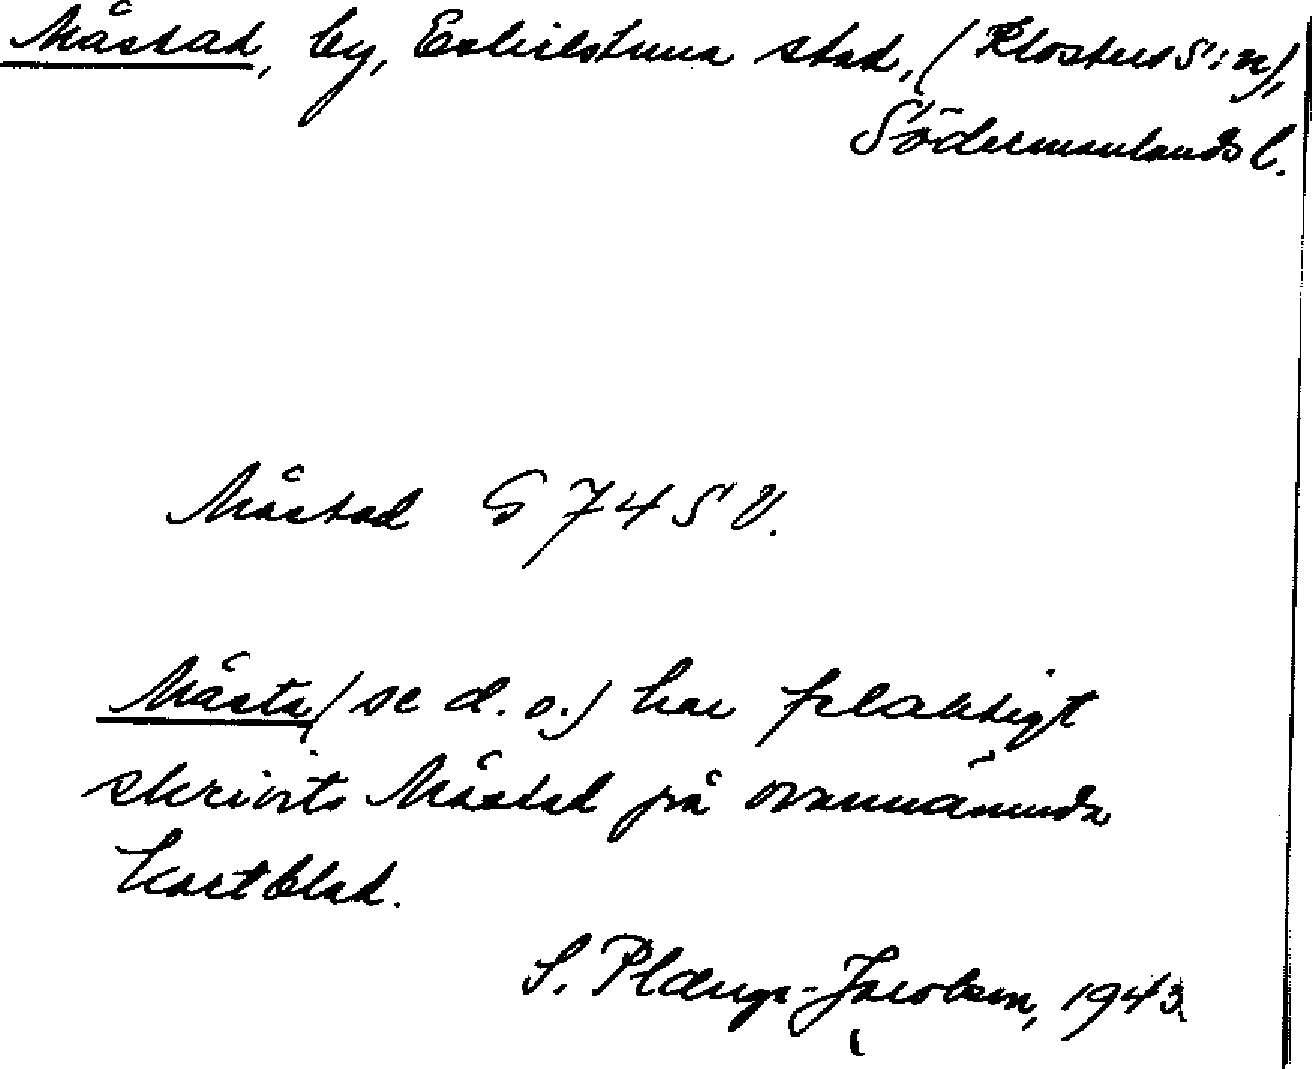 Måstad, by, Eskilstuna stad, (Klosters s:n),
Södermanlands l.
Måstad G 74 SV.
Måsta (se d. o.) har felaktigt
skrivits Måstad på ovannämnda
kartblad.
S. Plænge-Jacobson, 1943.